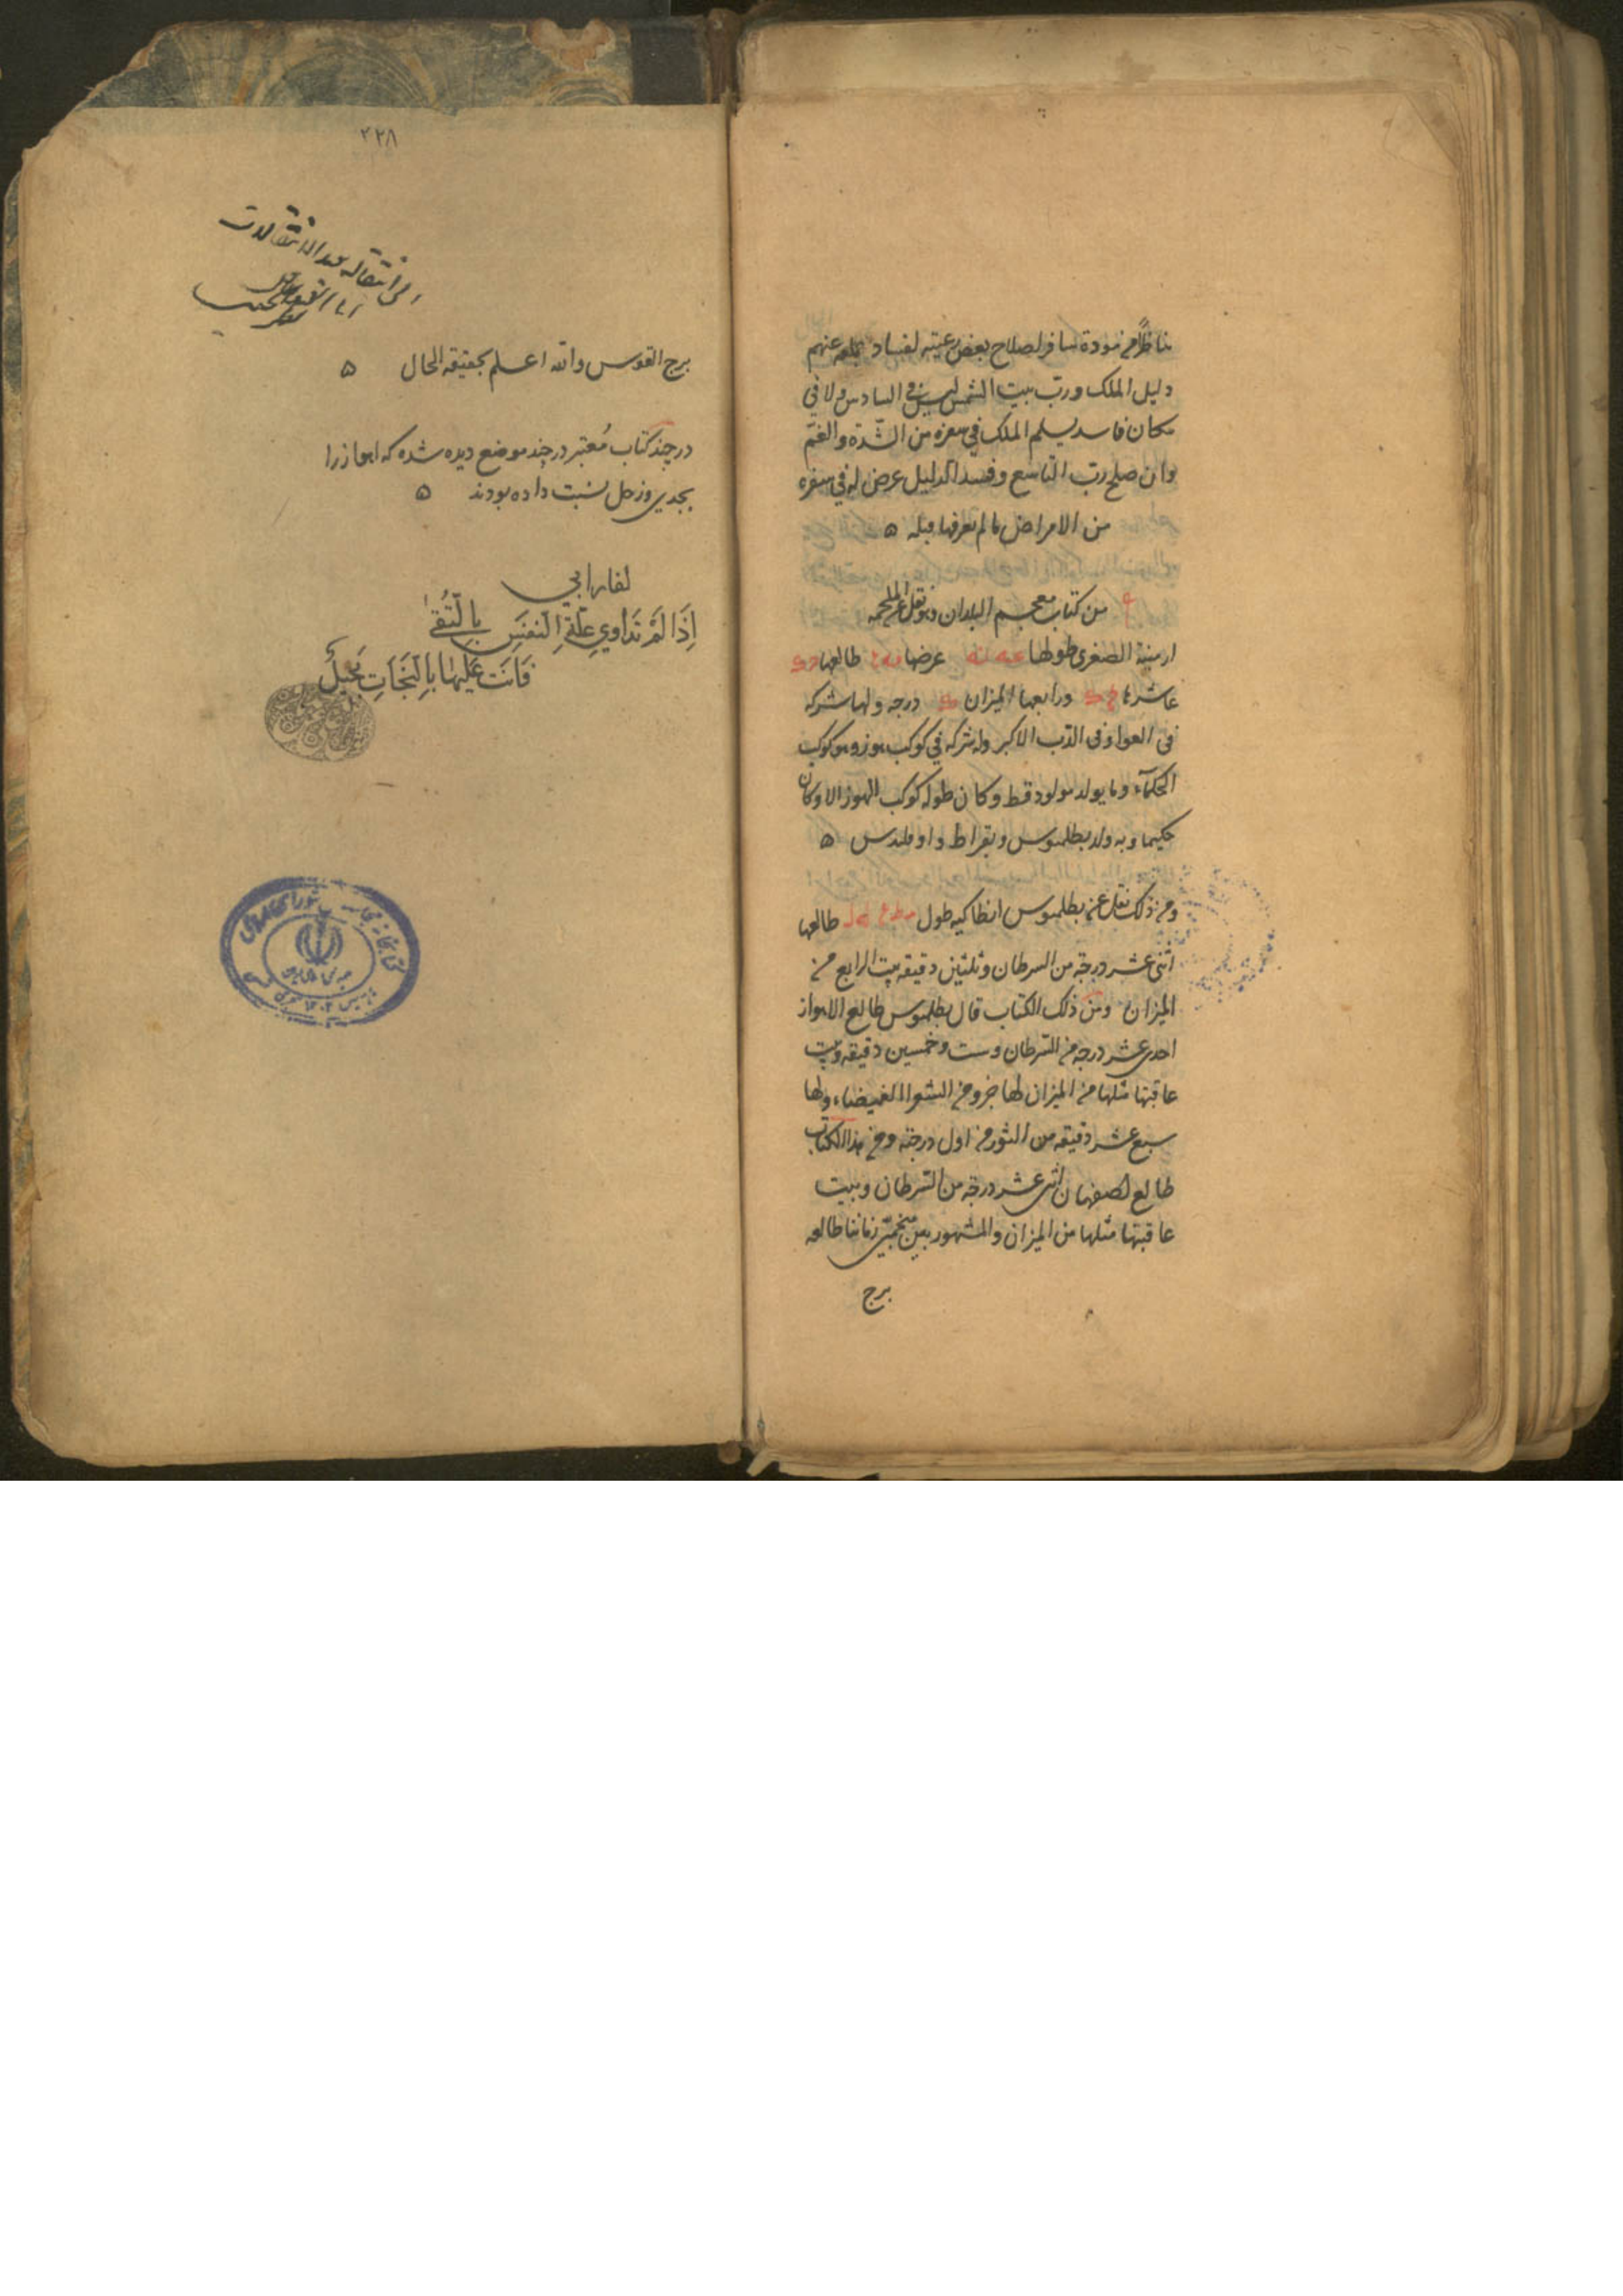 تناظرا من مودة سافر لصلاح بعض رعيته لفساد بلغه عنهم
دليل الملك ورب بيت الشمس ليس في السادس ولا في
مكان فاسد يسلم الملك في سفره من الشدة والغم
وان صلح رب التاسع وفسد الدليل عرض له في سفره
من الامراض ما لم يعرفها قبله ه
من كتاب معجم البلدان وهو نقل عن الملحمه
ارمينية الصغرى طولها عه نه عرضها مه طالعها
عاشرها ورابعها الميزان درجه ولها شركه
في العوا وفي الدب الاكبر وله شركه في كوكب هوز وهو كوكب
الحكمآء وما يولد مولود قط وكان طوله كوكب الهوز الا وكان
حكيما وبه ولد بطلميوس وبقراط واوقليدس ه
ومن ذلك نقل عن بطلميوس انطاكيه طول طالعها
اثنى عشر درجة من السرطان وثلثين دقيقه بيت الرابع من
الميزان ومن ذلك الكتاب قال بطلميوس طالع الاهواز
احدى عشر درجه من السرطان وست وخمسين دقيقه وبيت
عاقبتها مثلها من الميزان لها جزو من الشعرا الغميضاء ولها
سبع عشر دقيقه من الثور من اول درجة ومن هذا الكتاب
طالع اصفهان اثنى عشر درجة من السرطان وبيت
عاقبتها مثلها من الميزان والمشهور بين منجمي زماننا طالعه
برج
۴۲۸
من انتقاله بعد الانتقالات
برج القوس والله اعلم بحقيقه الحال ه
در چند كتاب معتبر در چند موضع ديده شده كه اهواز را
بجدي وزحل نسبت داده بودند ه
لفارابي
اِذَا لَمْ تَدَاوي عِلَّةِ النَفسَ بِالتُّقىٰ
فَانَت عَلَيهَا بِالنَجَاتِ بَخيلُ
كتابخانه مجلس شوراى اسلامى